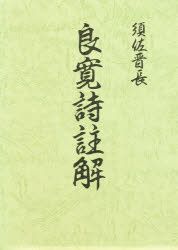 須佐晋長
良寛詩註解